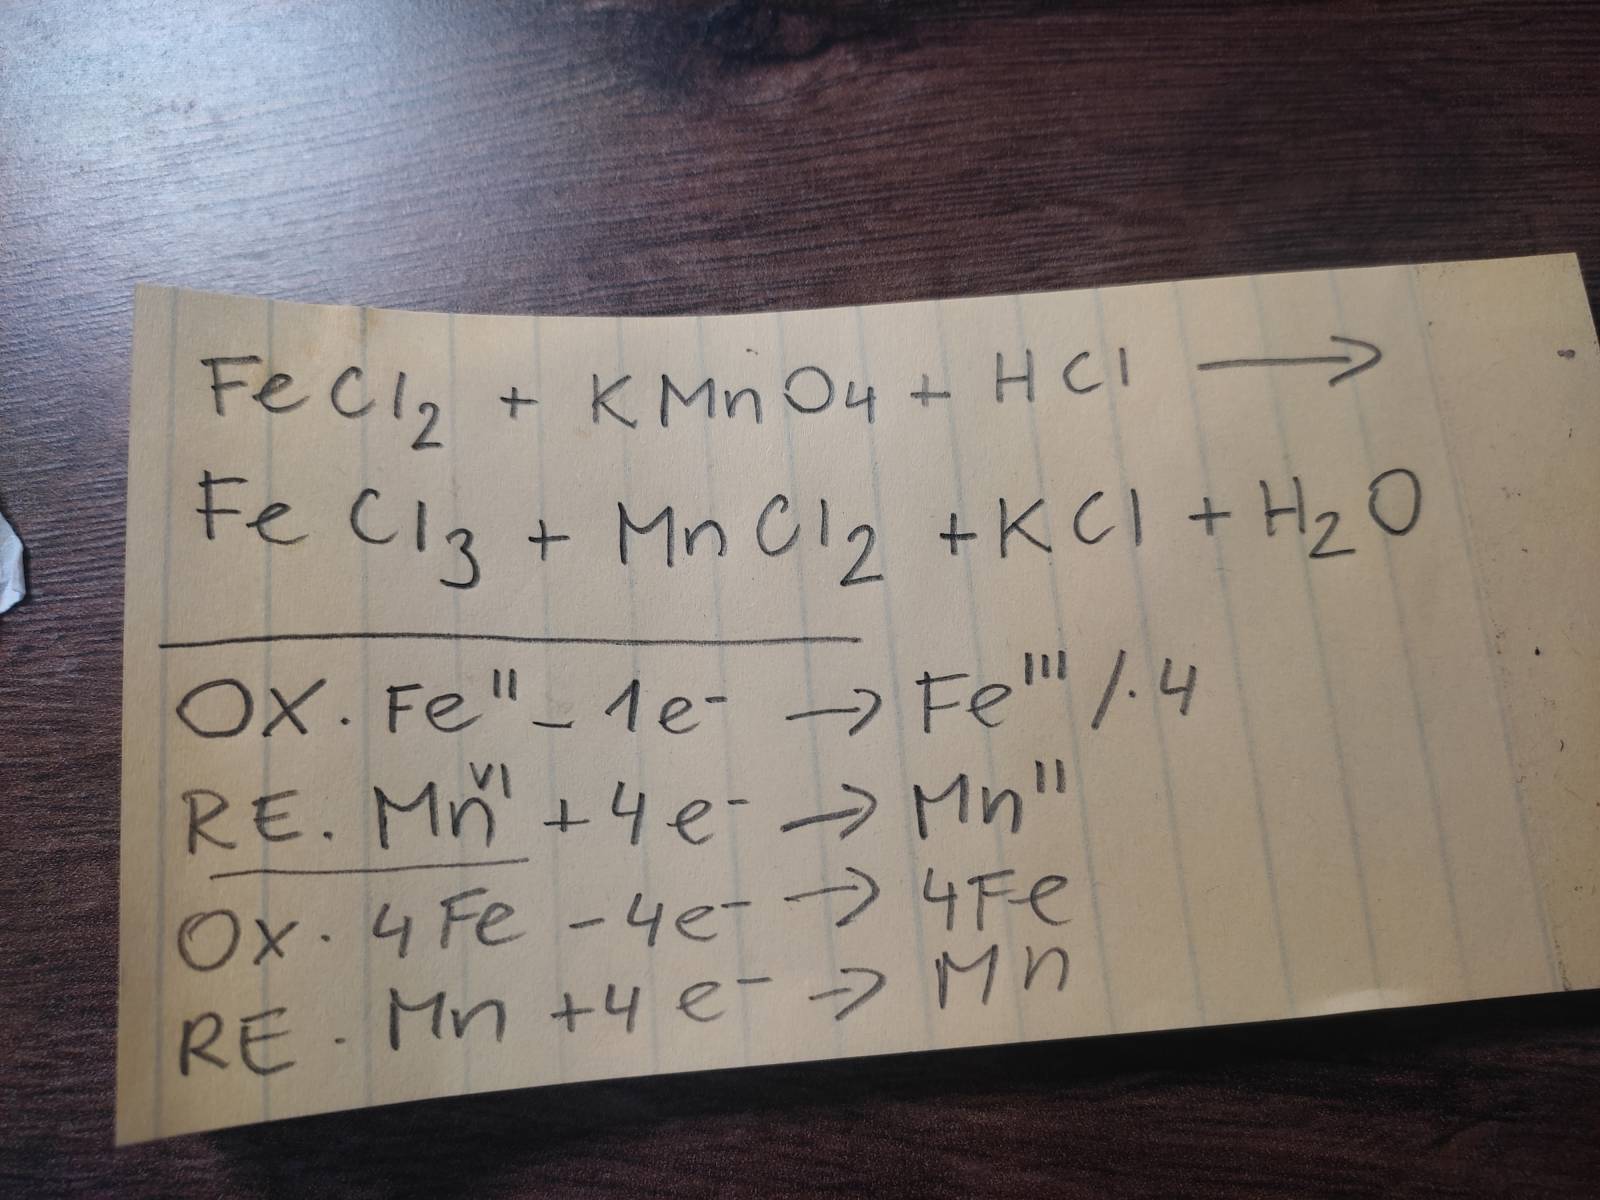 FeCl₂ + KMnO₄ + HCl →
FeCl₃ + MnCl₂ + KCl + H₂O
OX. Feᴵᴵ - 1e⁻ → Feᴵᴵᴵ /·4
RE. Mnⱽᴵ + 4e⁻ → Mnᴵᴵ
OX. 4Fe - 4e⁻ → 4Fe
RE. Mn + 4e⁻ → Mn